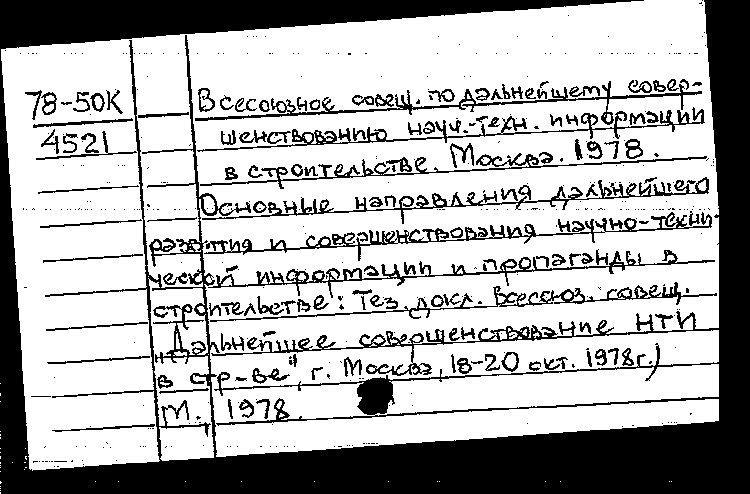 78-50К
4521
Всесоюзное совещ. по дальнейшему совер-
шенствованию науч.-техн. информации
в строительстве. Москва. 1978.
Основные направления дальнейшего
развития и совершенствования научно-техни-
ческой информации и пропаганды в
строительстве: Тез. докл. Всесоюз. совещ.
"Дальнейшее совершенствование НТИ
в стр-ве", г. Москва, 18-20 окт. 1978г.)
М., 1978.